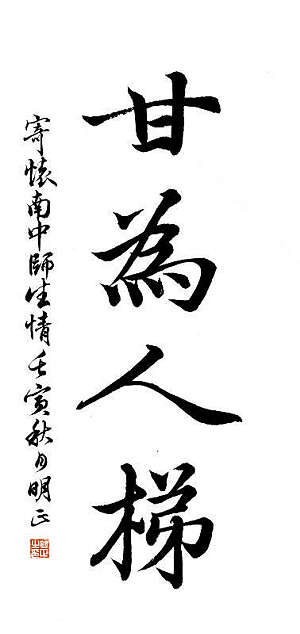 甘為人梯
寄懷南中師生情壬寅秋月明正